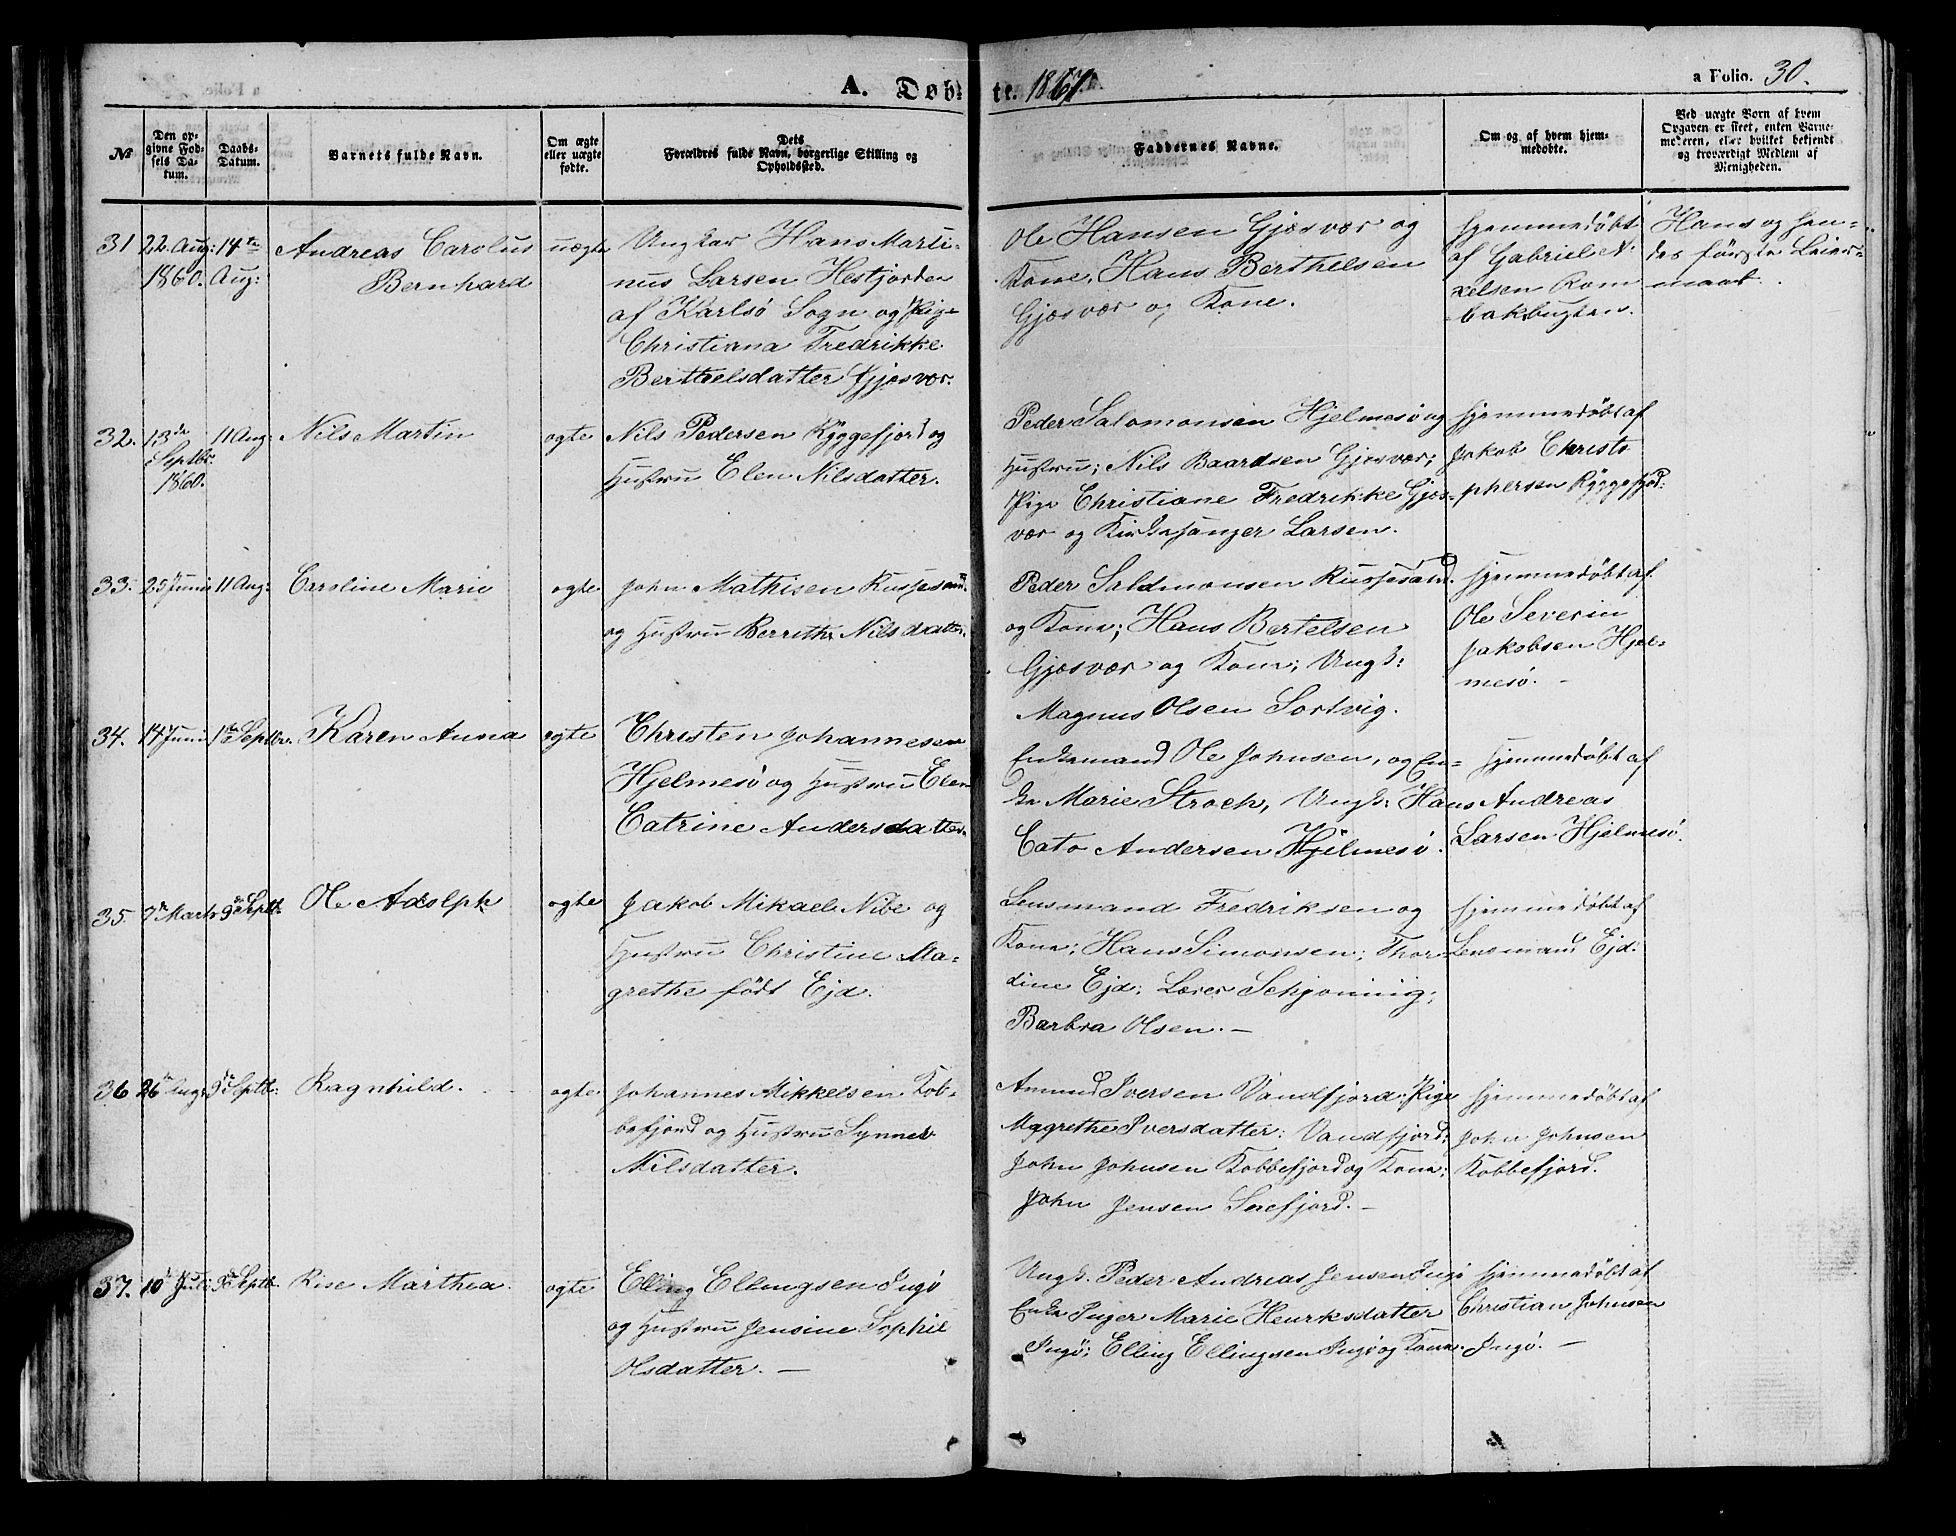 A. Døbte. 1861.
a Folio. 30.
№
Den opgivne Fødsels Datum.
Daabs-Datum.
Barnets fulde Navn.
Om ægte eller uægte fødte.
Dets Forældres fulde Navn, borgerlige Stilling og Opholdssted.
Faddernes Navne.
Om og af hvem hjemmedøbte.
Ved uægte Born af hvem Opgaven er skeet, enten Barnemoderen, eller hvilket bekjendt og troværdigt Medlem af Menigheden.
31 22. Aug: 1860. 14de Aug:
Andreas Carolus
Bernhard
uægte
Ungkar Hans Marti-
nus Larsen Hestfjorden
af Karlsö Sogn og Pige
Christiana Fredrikke
Berthelsdatter Gjæsvær.
Ole Hansen Gjæsvær og
Kone, Hans Berthelsen
Gjæsvær og Kone.
Hjemmedöbt
af Gabriel A-
xelsen Kom
bakbugten.
Hans og hen-
des förste Leier-
maal.
32. 13de Septbr. 1860. 11 Aug:
Nils Martin
ægte
Nils Pedersen Ryggefjord og
Hustru Elen Nilsdatter.
Peder Salomonsen Hjelmesö og
Hustru; Nils Baardsen Gjæsvær;
Pige Christiane Fredrikke Gjæs-
vær og Kirkesanger Larsen.
Hjemmedöbt af
Jakob Christo
phersen Ryggefjord:
33. 25 Juni 11 Aug:
Caroline Marie
ægte
John Mathisen Russesund.
og Hustru Berrethe Nilsdatter.
Peder Salomonsen Russesund.
og Kone; Hans Bertelsen
Gjæsvær og Kone; Ungk:
Magnus Olsen Sortvig.
Hjemmedöbt af
Ole Severin
Jakobsen Hjel-
mesö. —
34. 14 Juni 1ste Septbr.
Karen Anna
ægte
Christen Johannesen
Hjelmesö og Hustru Elen
Catrine Andersdatter.
Enkemand Ole Johnsen, og En-
ke Marie Stroch, Ungk: Hans
Cato Andersen Hjelmesö.
Hjemmedöbt af
Andreas
Larsen Hjelmesö.
35. 7de Marts 9de Septb.
Ole Adolph
ægte
Jakob Mikael Nibe og
Hustru Christine Ma-
grethe födt Ejd.
Lensmand Fredriksen og
Kone; Hans Simonsen; Thor-
dine Ejd; Lærer Schjönning;
Barbra Olsen. —
Hjemmedöbt af
Lensmand Ejd:
36 26de Aug: 9de Septb:
Ragnhild.
ægte
Johannes Mikkelsen Kob-
befjord og Hustru Synnev
Nilsdatter.
Amund Iversen Vandfjord; Pige
Magrethe Iversdatter: Vandfjord;
John Johnsen Kobbefjord og Kone;
John Jensen Snefjord. —
Hjemmedöbt af
John Johnsen
Kobbefjord.
37. 10de Juli 9de Septb.
Rise Marthea.
ægte
Elling Ellingsen Ingö
og Hustru Jensine Sophie
Olsdatter. —
Ungk. Peder Andreas Jensen Ingö
Enke Inger Marie Henriksdatter
Ingö; Elling Ellingsen Ingö og Kone.
Hjemmedöbt af
Christian Johnsen
Ingö. —